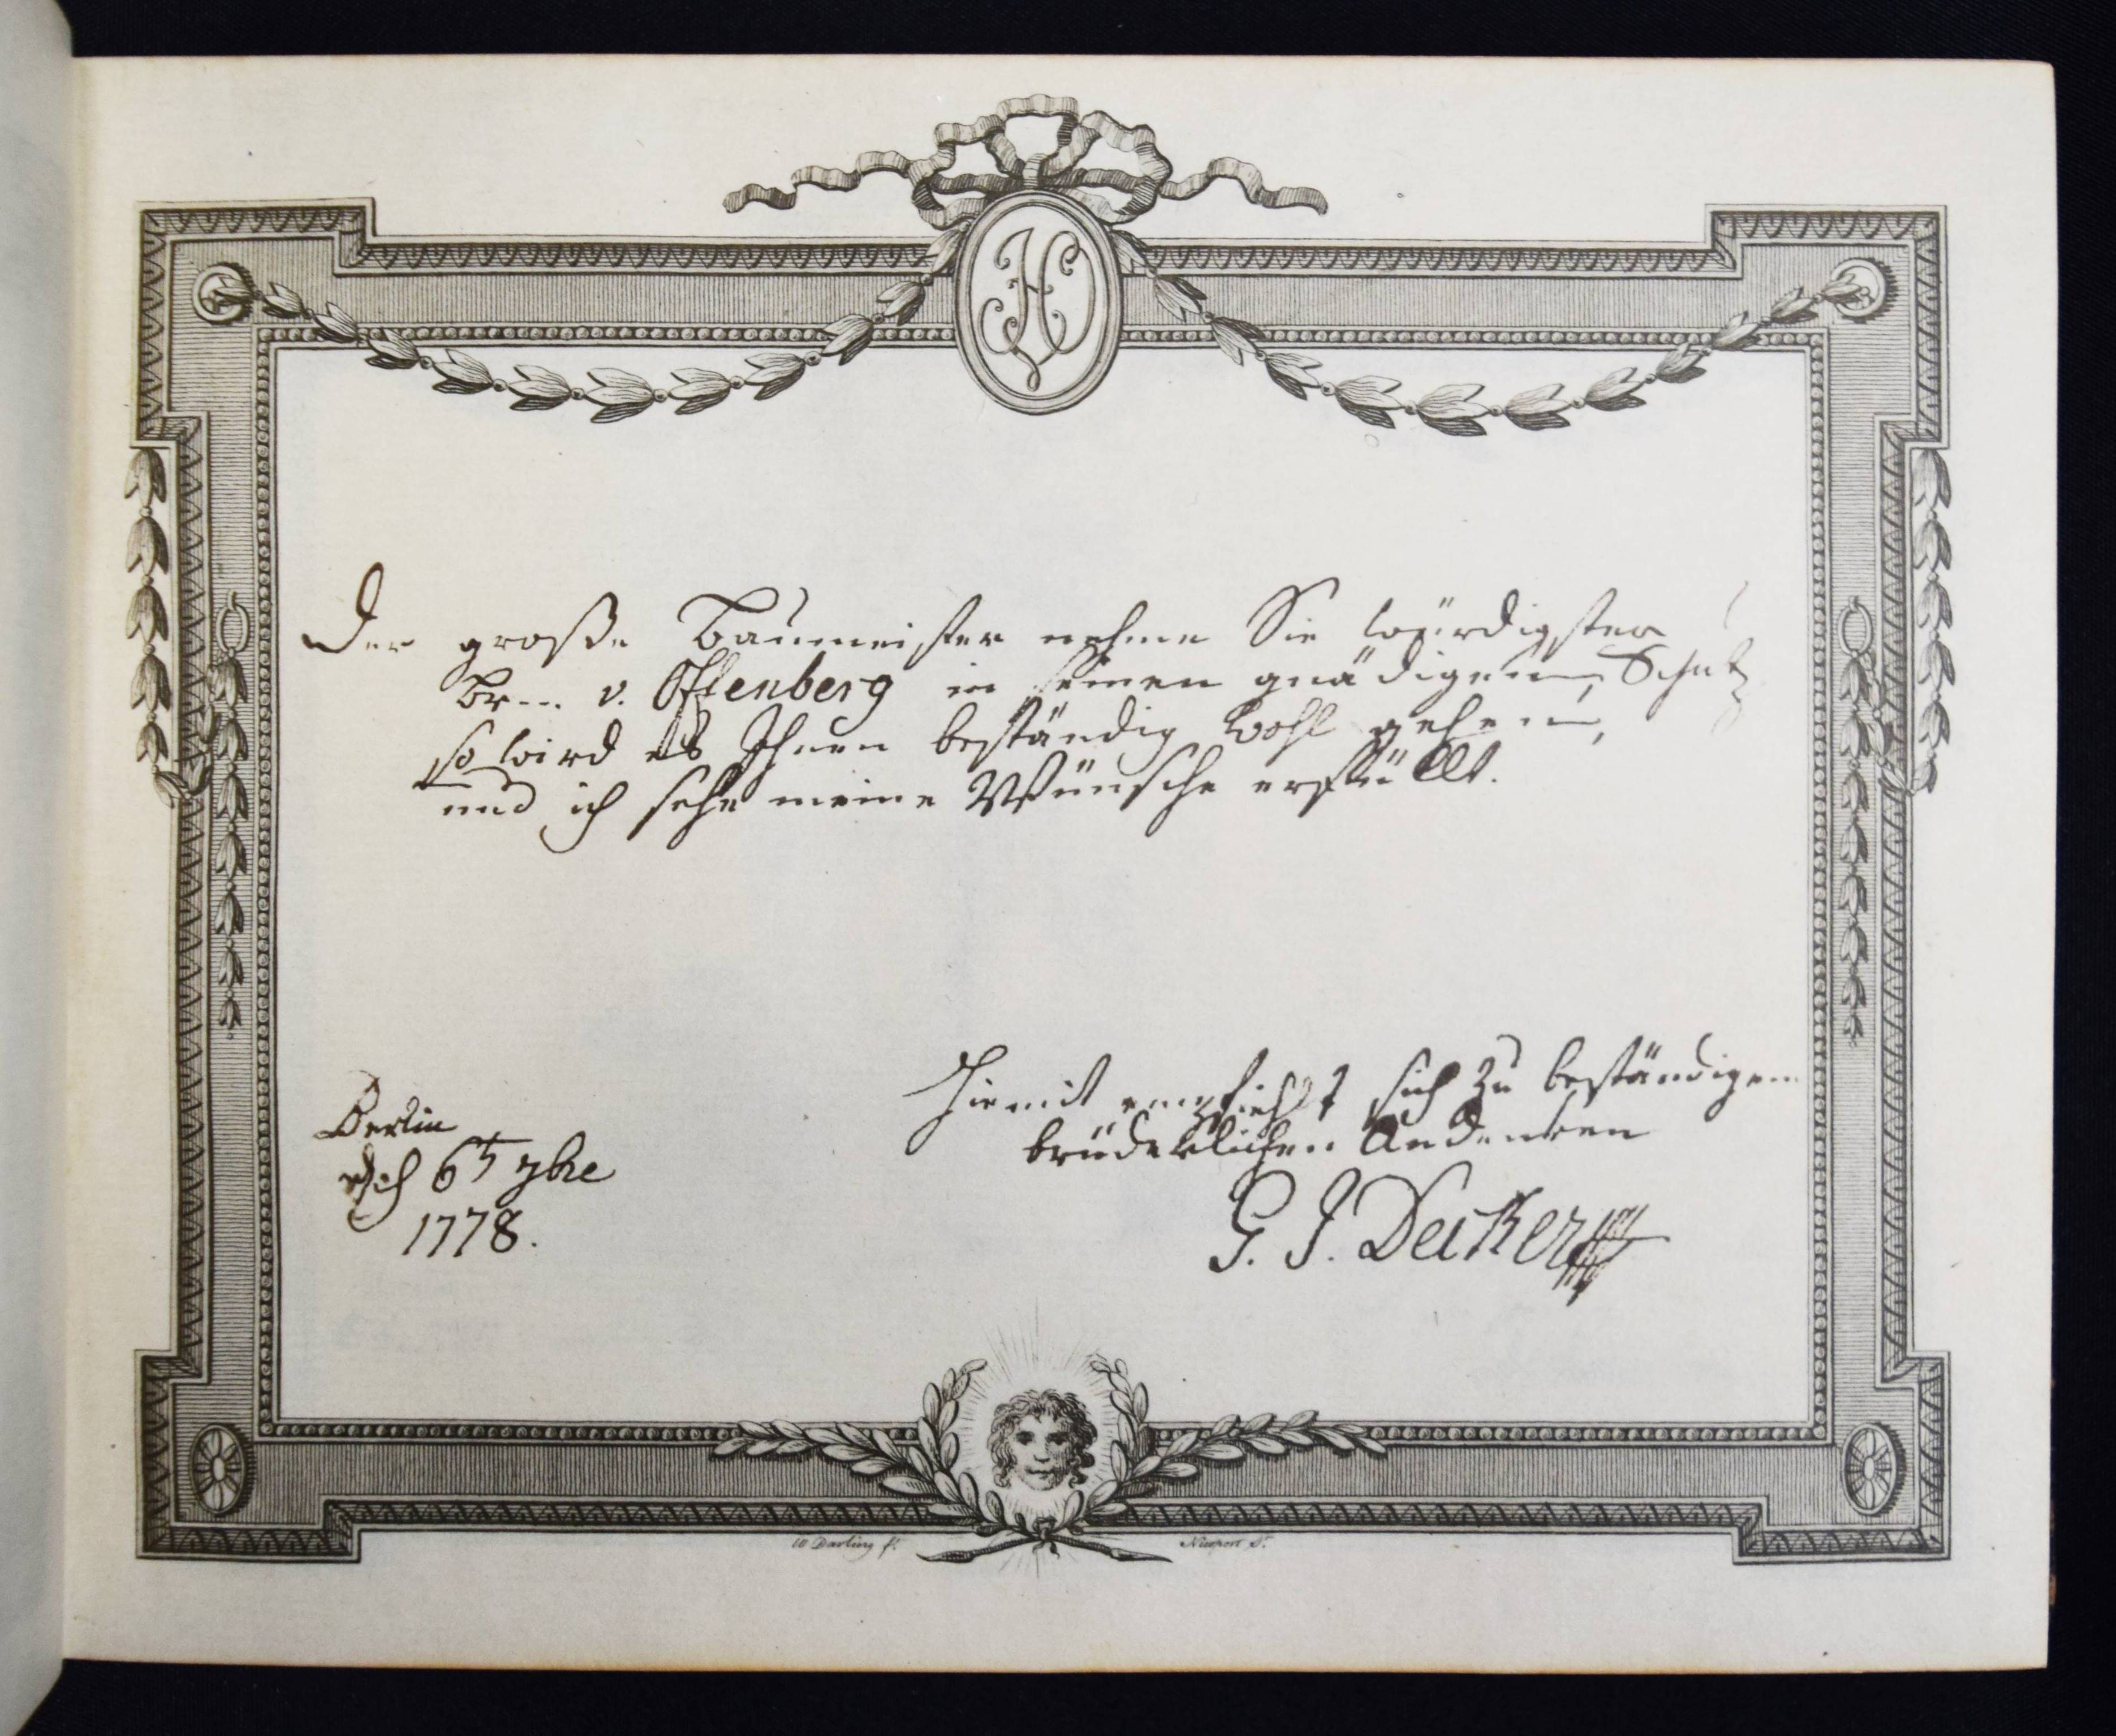 H
Der große Baumeister nehme Sie würdigster
Br... v. Offenberg in seinen gnädigen Schutz
so wird es Ihnen beständig wohl gehen,
und ich sehe meine Wünsche erfüllt.
Hiemit empfiehlt sich zu beständigem
brüderlichen Andenken
G. J. Decker
Berlin
6t 7bre
1778.
W Darling f. Newport St.